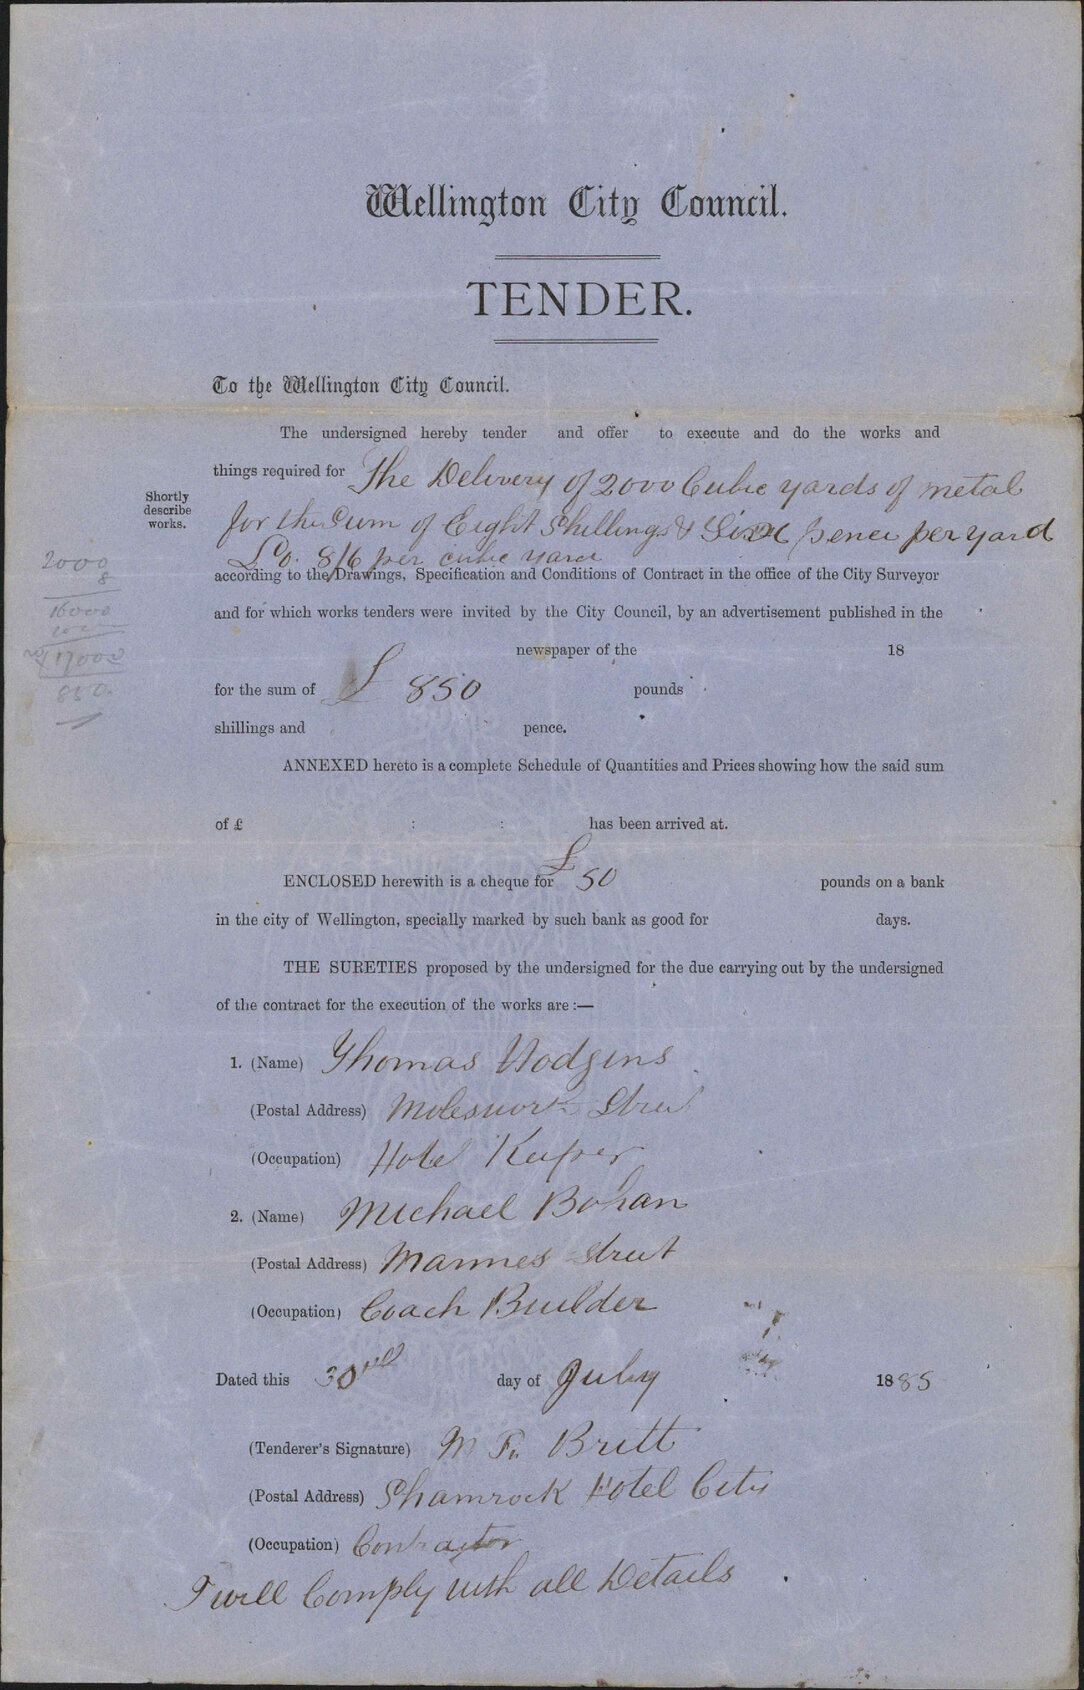 Wellington City Council.
TENDER.
To the Wellington City Council.
The undersigned hereby tender and offer to execute and do the works and
things required for The Delivery of 2000 Cubic yards of metal
Shortly
describe
works.
for the Sum of Eight Shillings & Six pence per yard
£0. 8/6 per cubic yard
2000
8
16000
1000
17000
850
according to the Drawings, Specification and Conditions of Contract in the office of the City Surveyor
and for which works tenders were invited by the City Council, by an advertisement published in the
newspaper of the 18
for the sum of £ 850 pounds
shillings and pence.
ANNEXED hereto is a complete Schedule of Quantities and Prices showing how the said sum
of £ : : has been arrived at.
ENCLOSED herewith is a cheque for £50 pounds on a bank
in the city of Wellington, specially marked by such bank as good for days.
THE SURETIES proposed by the undersigned for the due carrying out by the undersigned
of the contract for the execution of the works are :—
1. (Name) Thomas Hodgins
(Postal Address) Molesworth Street
(Occupation) Hotel Keeper
2. (Name) Michael Bohan
(Postal Address) Manners Street
(Occupation) Coach Builder
Dated this 30th day of July 1885
(Tenderer's Signature) M Britt
(Postal Address) Shamrock Hotel City
(Occupation) Contractor
I will Comply with all Details